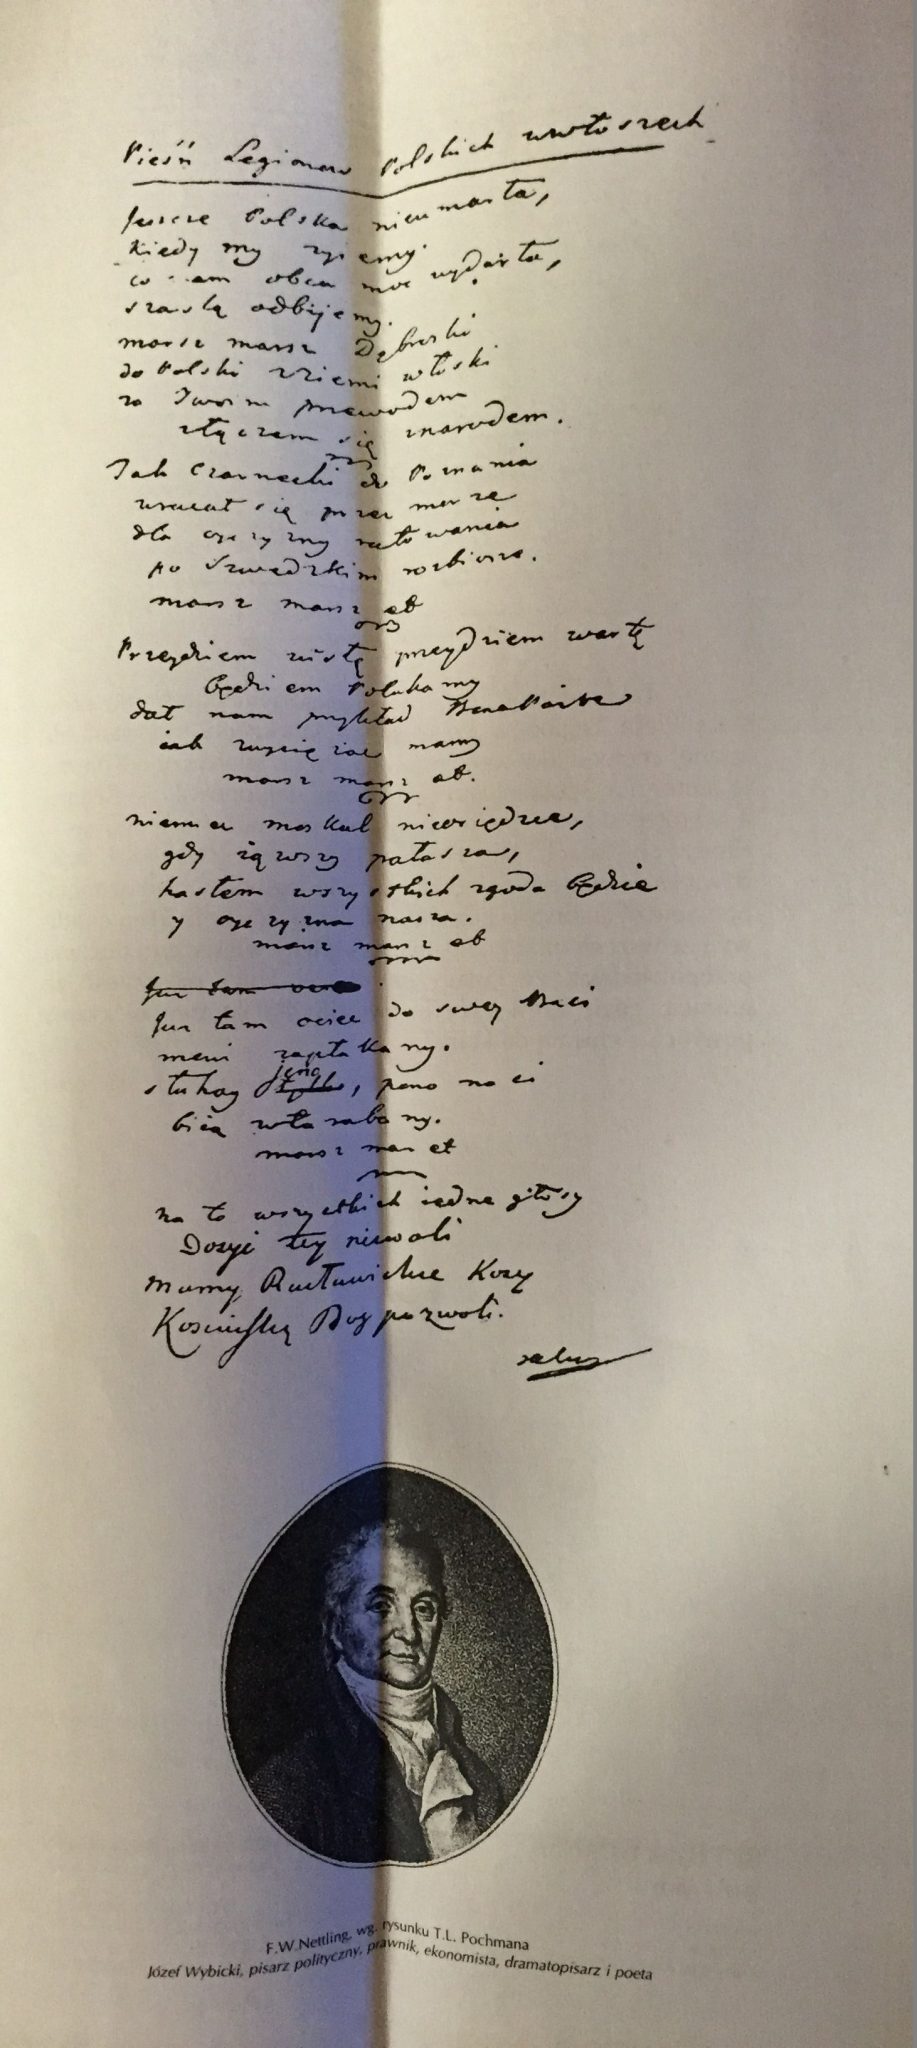 Pieśń Legionow Polskich wewłoszech
Jescze Polska nieumarła,
kiedy my zyiemy.
co nam obca moc wydarła,
szablą odbijemy.
marsz marsz Dąbroski
do Polski zziemi włoski
za Twoim przewodem
złączem się znarodem.
Jak Czarnecki do Poznania
wracał się przez morze
dla oyczyzny ratowania
po Szwedzkim rozbiorze.
marsz marsz et
Przeydziem wisłę przeydziem wartę
będziem Polakamy
dał nam przykład Bonaparte
iak zwycięzać mamy
marsz marsz et.
niemiec moskal nieosiędzie,
gdy iąwszy pałasza,
hasłem wszystkich zgoda będzie
y oyczyzna nasza.
marsz marsz et
Juz tam
Juz tam ociec do swey Basi
mowi zapłakany.
jeno
słuhay tylko, pono nasi
bią wtarabany.
marsz mar et
na to wszystkich iedne głosy
Dosyć tey niewoli
Mamy Racławickie Kosy
Kosciuszkę Bog pozwoli.
F.W.Nettling, wg. rysunku T.L. Pochmana
Józef Wybicki, pisarz polityczny, prawnik, ekonomista, dramatopisarz i poeta